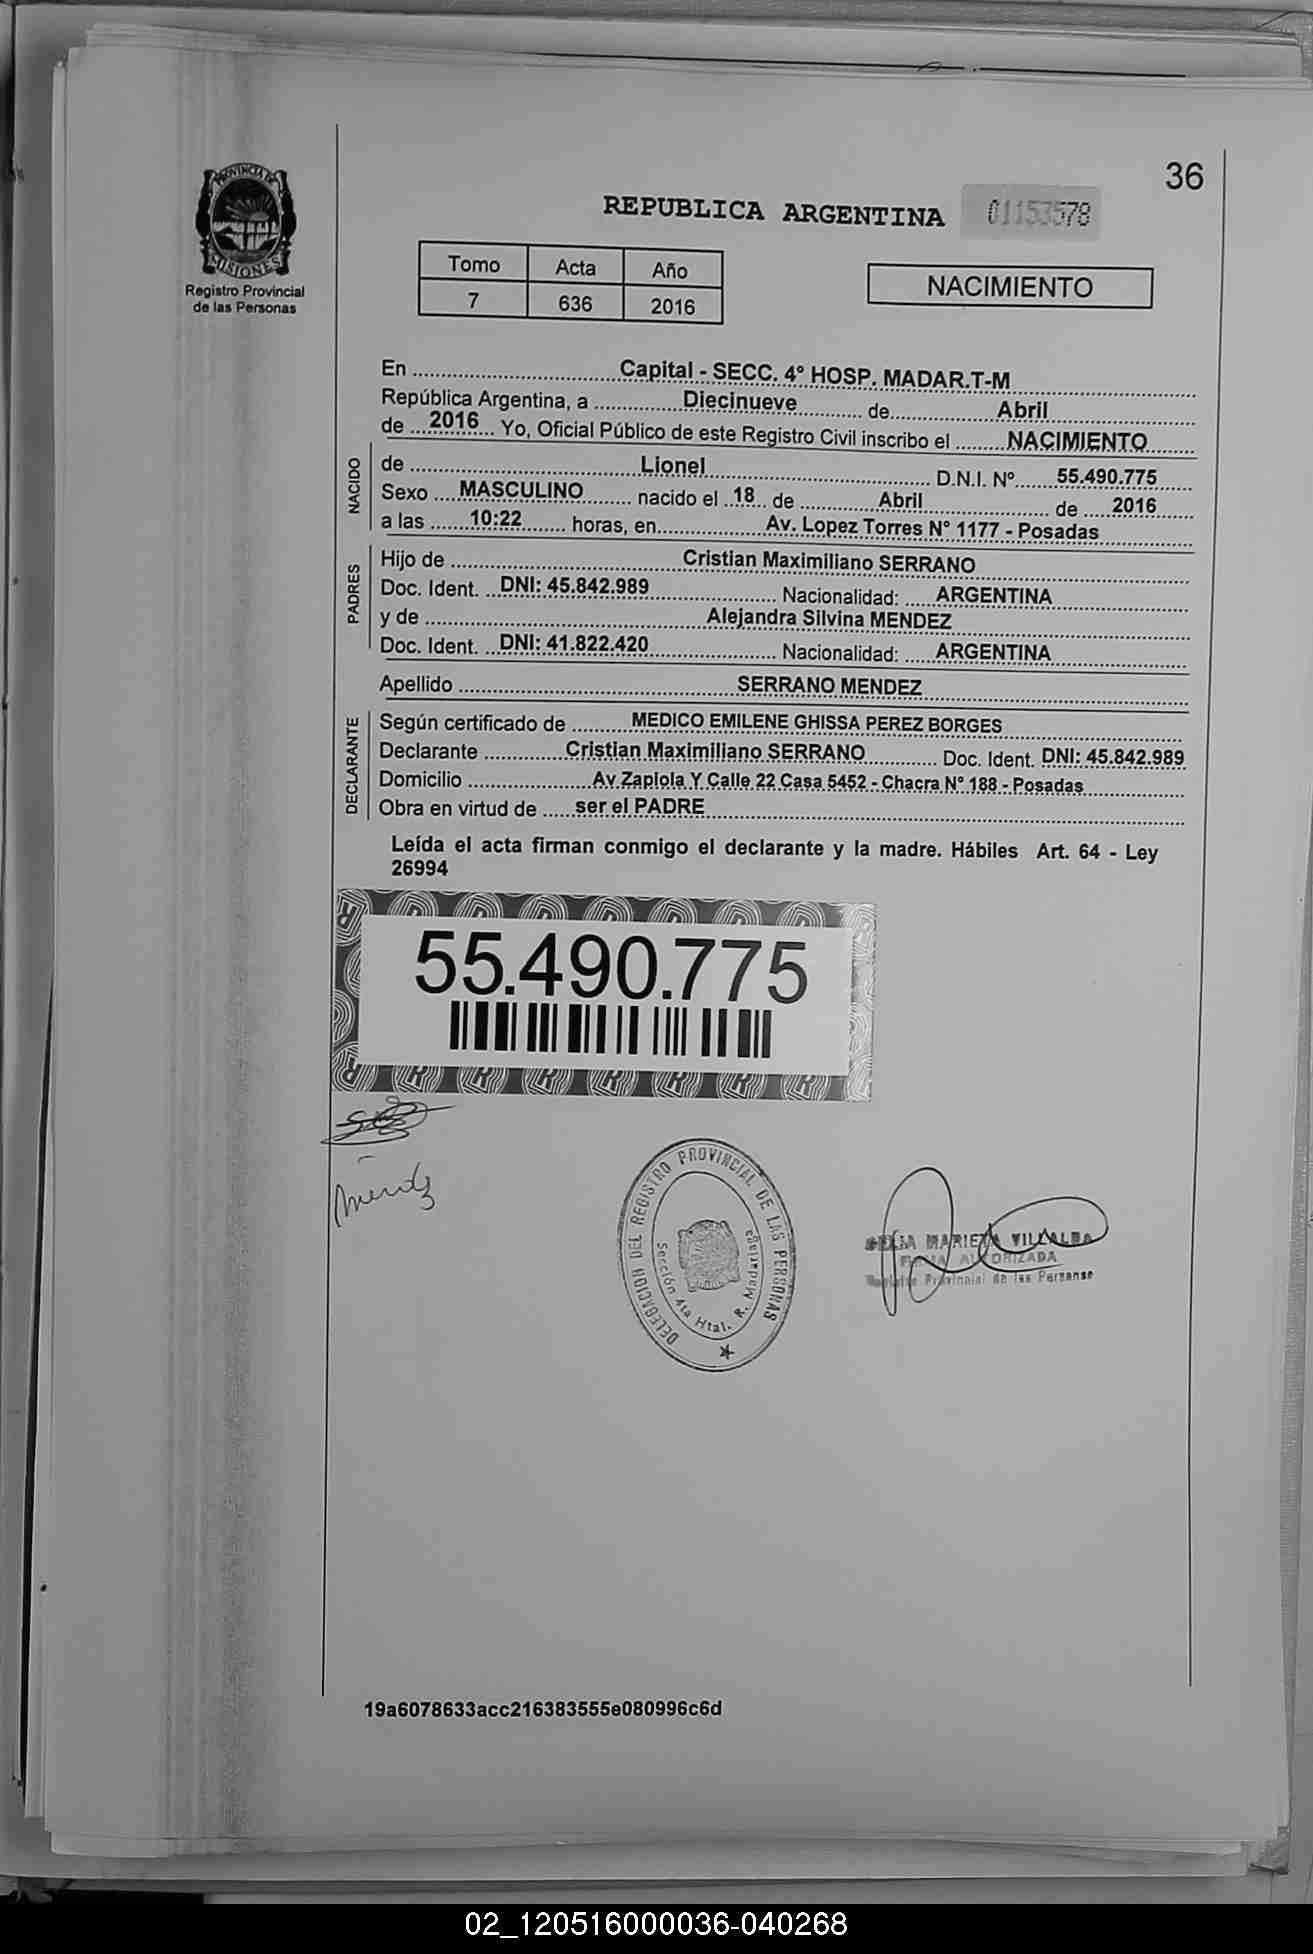 36
PROVINCIA DE
MISIONES
Registro Provincial
de las Personas
REPUBLICA ARGENTINA 01153578
Tomo Acta Año
7 636 2016
NACIMIENTO
En Capital - SECC. 4° HOSP. MADAR.T-M
República Argentina, a Diecinueve de Abril
de 2016 Yo, Oficial Público de este Registro Civil inscribo el NACIMIENTO
NACIDO
de Lionel D.N.I. Nº 55.490.775
Sexo MASCULINO nacido el 18 de Abril de 2016
a las 10:22 horas, en Av. Lopez Torres N° 1177 - Posadas
PADRES
Hijo de Cristian Maximiliano SERRANO
Doc. Ident. DNI: 45.842.989 Nacionalidad: ARGENTINA
y de Alejandra Silvina MENDEZ
Doc. Ident. DNI: 41.822.420 Nacionalidad: ARGENTINA
Apellido SERRANO MENDEZ
DECLARANTE
Según certificado de MEDICO EMILENE GHISSA PEREZ BORGES
Declarante Cristian Maximiliano SERRANO Doc. Ident. DNI: 45.842.989
Domicilio Av Zapiola Y Calle 22 Casa 5452 - Chacra N° 188 - Posadas
Obra en virtud de ser el PADRE
Leída el acta firman conmigo el declarante y la madre. Hábiles Art. 64 - Ley
26994
55.490.775
DELEGACION DEL REGISTRO PROVINCIAL DE LAS PERSONAS
Sección 4ta Htal. R. Madariaga
VILLALBA
AUTORIZADA
Provincial de las Personas
19a6078633acc216383555e080996c6d
02_120516000036-040268